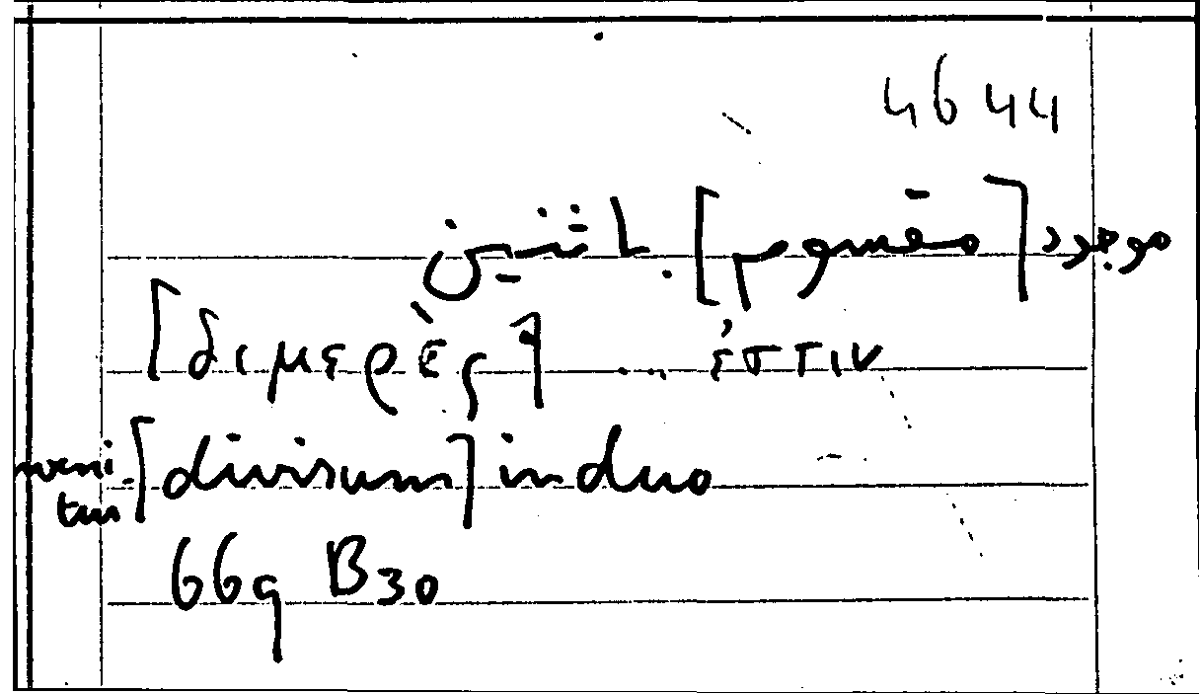 4644
موجود [مقسوم] باثنين
[διμερὲς] ... ἐστιν
inveni-[divisum] in duo
tur
669 B30